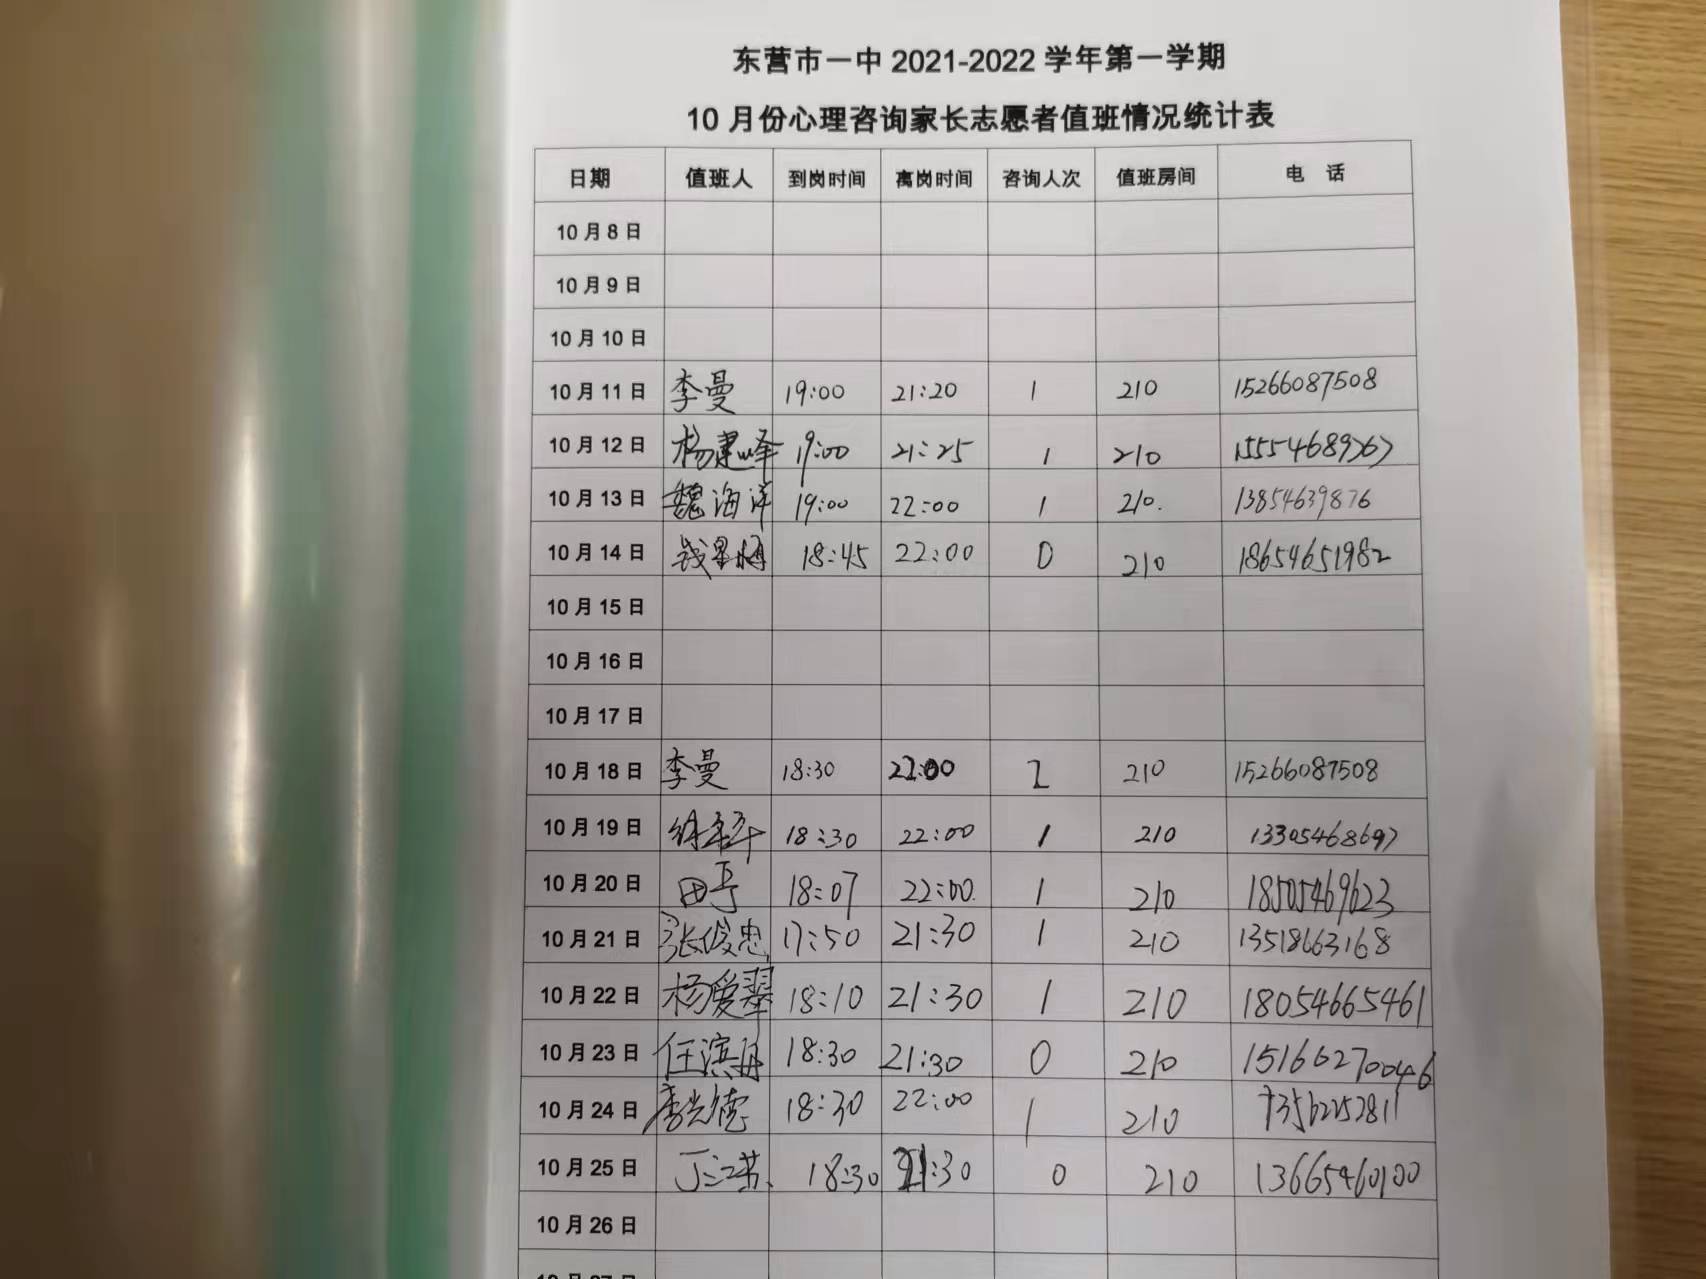 东营市一中 2021-2022 学年第一学期
10 月份心理咨询家长志愿者值班情况统计表
日期 值班人 到岗时间 离岗时间 咨询人次 值班房间 电 话
10 月 8 日
10 月 9 日
10 月 10 日
10 月 11 日 李曼 19:00 21:20 1 210 15266087508
10 月 12 日 杨建峰 19:00 21:25 1 210 15554689767
10 月 13 日 魏海洋 19:00 22:00 1 210. 13854639876
10 月 14 日 18:45 22:00 0 210 18654651982
10 月 15 日
10 月 16 日
10 月 17 日
10 月 18 日 李曼 18:30 22:00 2 210 15266087508
10 月 19 日 18:30 22:00 1 210 13305468697
10 月 20 日 田亭 18:07 22:00 1 210 18505469623
10 月 21 日 张俊忠 17:50 21:30 1 210 13518663168
10 月 22 日 杨爱翠 18:10 21:30 1 210 18054665461
10 月 23 日 任滨丹 18:30 21:30 0 210 15166270046
10 月 24 日 李光德 18:30 22:00 1 210
10 月 25 日 丁江燕 18:30 21:30 0 210 13665460100
10 月 26 日